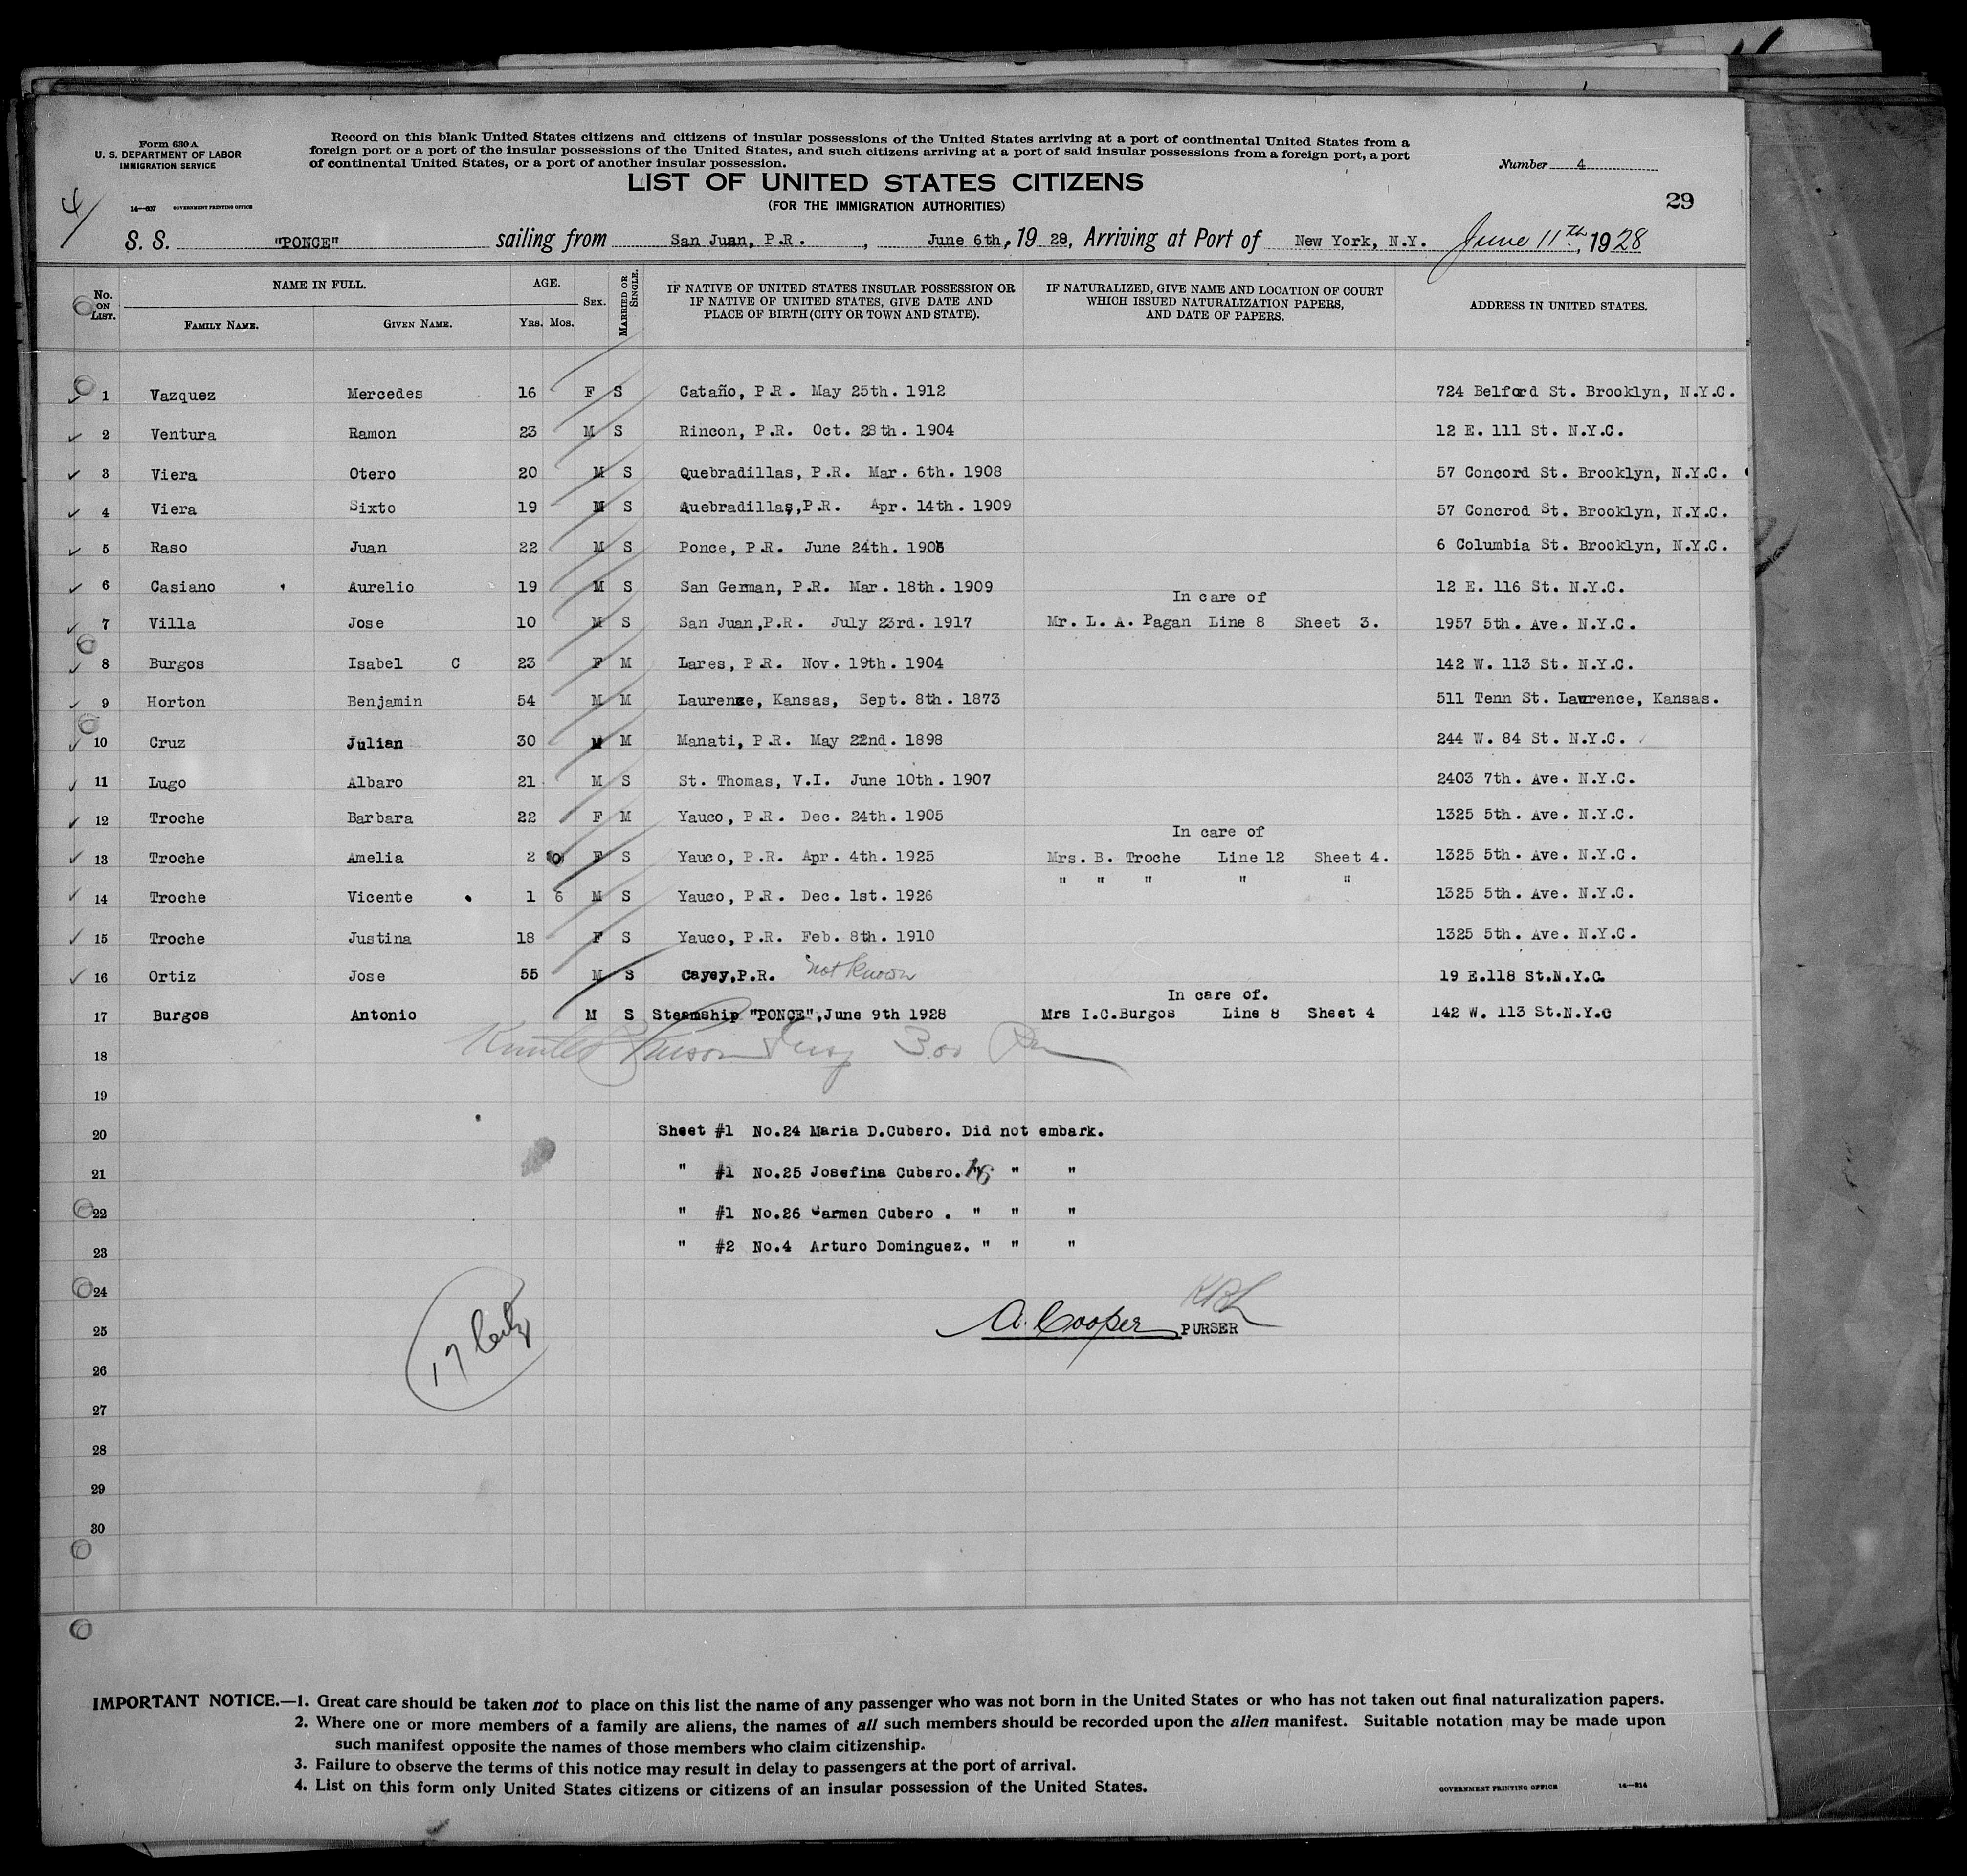 Form 630 A
U. S. DEPARTMENT OF LABOR
IMMIGRATION SERVICE
14—607 GOVERNMENT PRINTING OFFICE
Record on this blank United States citizens and citizens of insular possessions of the United States arriving at a port of continental United States from a
foreign port or a port of the insular possessions of the United States, and such citizens arriving at a port of said insular possessions from a foreign port, a port
of continental United States, or a port of another insular possession.
Number 4
LIST OF UNITED STATES CITIZENS
(FOR THE IMMIGRATION AUTHORITIES)
29
4/
S. S. "PONCE" sailing from San Juan, P.R. , June 6th, 19 28, Arriving at Port of New York, N.Y. June 11th, 1928
No. ON LIST. NAME IN FULL. FAMILY NAME. GIVEN NAME. AGE. Yrs. Mos. SEX. MARRIED OR SINGLE. IF NATIVE OF UNITED STATES INSULAR POSSESSION OR IF NATIVE OF UNITED STATES, GIVE DATE AND PLACE OF BIRTH (CITY OR TOWN AND STATE). IF NATURALIZED, GIVE NAME AND LOCATION OF COURT WHICH ISSUED NATURALIZATION PAPERS, AND DATE OF PAPERS. ADDRESS IN UNITED STATES.
1 Vazquez Mercedes 16 F S Cataño, P.R. May 25th. 1912 724 Belford St. Brooklyn, N.Y.C.
2 Ventura Ramon 23 M S Rincon, P.R. Oct. 28th. 1904 12 E. 111 St. N.Y.C.
3 Viera Otero 20 M S Quebradillas, P.R. Mar. 6th. 1908 57 Concord St. Brooklyn, N.Y.C.
4 Viera Sixto 19 M S Quebradillas,P.R. Apr. 14th. 1909 57 Concrod St. Brooklyn, N.Y.C.
5 Raso Juan 22 M S Ponce, P.R. June 24th. 6 Columbia St. Brooklyn, N.Y.C.
6 Casiano Aurelio 19 M S San German, P.R. Mar. 18th. 1909 12 E. 116 St. N.Y.C.
In care of
7 Villa Jose 10 M S San Juan,P.R. July 23rd. 1917 Mr. L. A. Pagan Line 8 Sheet 3. 1957 5th. Ave. N.Y.C.
8 Burgos Isabel C 23 F M Lares, P.R. Nov. 19th. 1904 142 W. 113 St. N.Y.C.
9 Horton Benjamin 54 M M Laurence, Kansas, Sept. 8th. 1873 511 Tenn St. Lawrence, Kansas.
10 Cruz Julian 30 M M Manati, P.R. May 22nd. 1898 244 W. 84 St. N.Y.C.
11 Lugo Albaro 21 M S St. Thomas, V.I. June 10th. 1907 2403 7th. Ave. N.Y.C.
12 Troche Barbara 22 F M Yauco, P.R. Dec. 24th. 1905 1325 5th. Ave. N.Y.C.
In care of
13 Troche Amelia 2 0 F S Yauco, P.R. Apr. 4th. 1925 Mrs. B. Troche Line 12 Sheet 4. 1325 5th. Ave. N.Y.C.
" " " " "
14 Troche Vicente 1 6 M S Yauco, P.R. Dec. 1st. 1926 1325 5th. Ave. N.Y.C.
15 Troche Justina 18 F S Yauco, P.R. Feb. 8th. 1910 1325 5th. Ave. N.Y.C.
16 Ortiz Jose 55 M S Cayey,P.R. not known 19 E.118 St.N.Y.C.
In care of.
17 Burgos Antonio M S Steamship "PONCE",June 9th 1928 Mrs I.C.Burgos Line 8 Sheet 4 142 W. 113 St.N.Y.C
18
19
20 Sheet #1 No.24 Maria D.Cubero. Did not embark.
21 " #1 No.25 Josefina Cubero. " "
22 " #1 No.26 Carmen Cubero . " " "
23 " #2 No.4 Arturo Dominguez. " " "
24
25 A. Cooper PURSER
26
27
28
29
30
IMPORTANT NOTICE.—1. Great care should be taken not to place on this list the name of any passenger who was not born in the United States or who has not taken out final naturalization papers.
2. Where one or more members of a family are aliens, the names of all such members should be recorded upon the alien manifest. Suitable notation may be made upon
such manifest opposite the names of those members who claim citizenship.
3. Failure to observe the terms of this notice may result in delay to passengers at the port of arrival.
4. List on this form only United States citizens or citizens of an insular possession of the United States.
GOVERNMENT PRINTING OFFICE 14—214